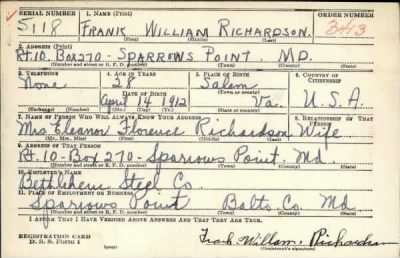 SERIAL NUMBER 1. NAME (Print) ORDER NUMBER
5118 FRANK WILLIAM RICHARDSON 3413
(First) (Middle) (Last)
2. ADDRESS (Print)
Rt. 10 Box 270 - SPARROWS POINT, MD.
(Number and street or R. F. D. number) (Town) (County) (State)
3. TELEPHONE 4. AGE IN YEARS 5. PLACE OF BIRTH 6. COUNTRY OF CITIZENSHIP
None 28 Salem
DATE OF BIRTH (Town or county)
April 14 1912 Va. U.S.A.
(Exchange) (Number) (Mo.) (Day) (Yr.) (State or country)
7. NAME OF PERSON WHO WILL ALWAYS KNOW YOUR ADDRESS 8. RELATIONSHIP OF THAT PERSON
Mrs Eleanor Florence Richardson Wife
(Mr., Mrs., Miss) (First) (Middle) (Last)
9. ADDRESS OF THAT PERSON
Rt. 10 - Box 270 - Sparrows Point, Md.
(Number and street or R. F. D. number) (Town) (County) (State)
10. EMPLOYER'S NAME
Bethlehem Steel Co.
11. PLACE OF EMPLOYMENT OR BUSINESS
Sparrows Point Balto. Co. Md
(Number and street or R. F. D. number) (Town) (County) (State)
I AFFIRM THAT I HAVE VERIFIED ABOVE ANSWERS AND THAT THEY ARE TRUE.
REGISTRATION CARD
D. S. S. FORM 1 (over) Frank William Richardson
(Registrant's signature)